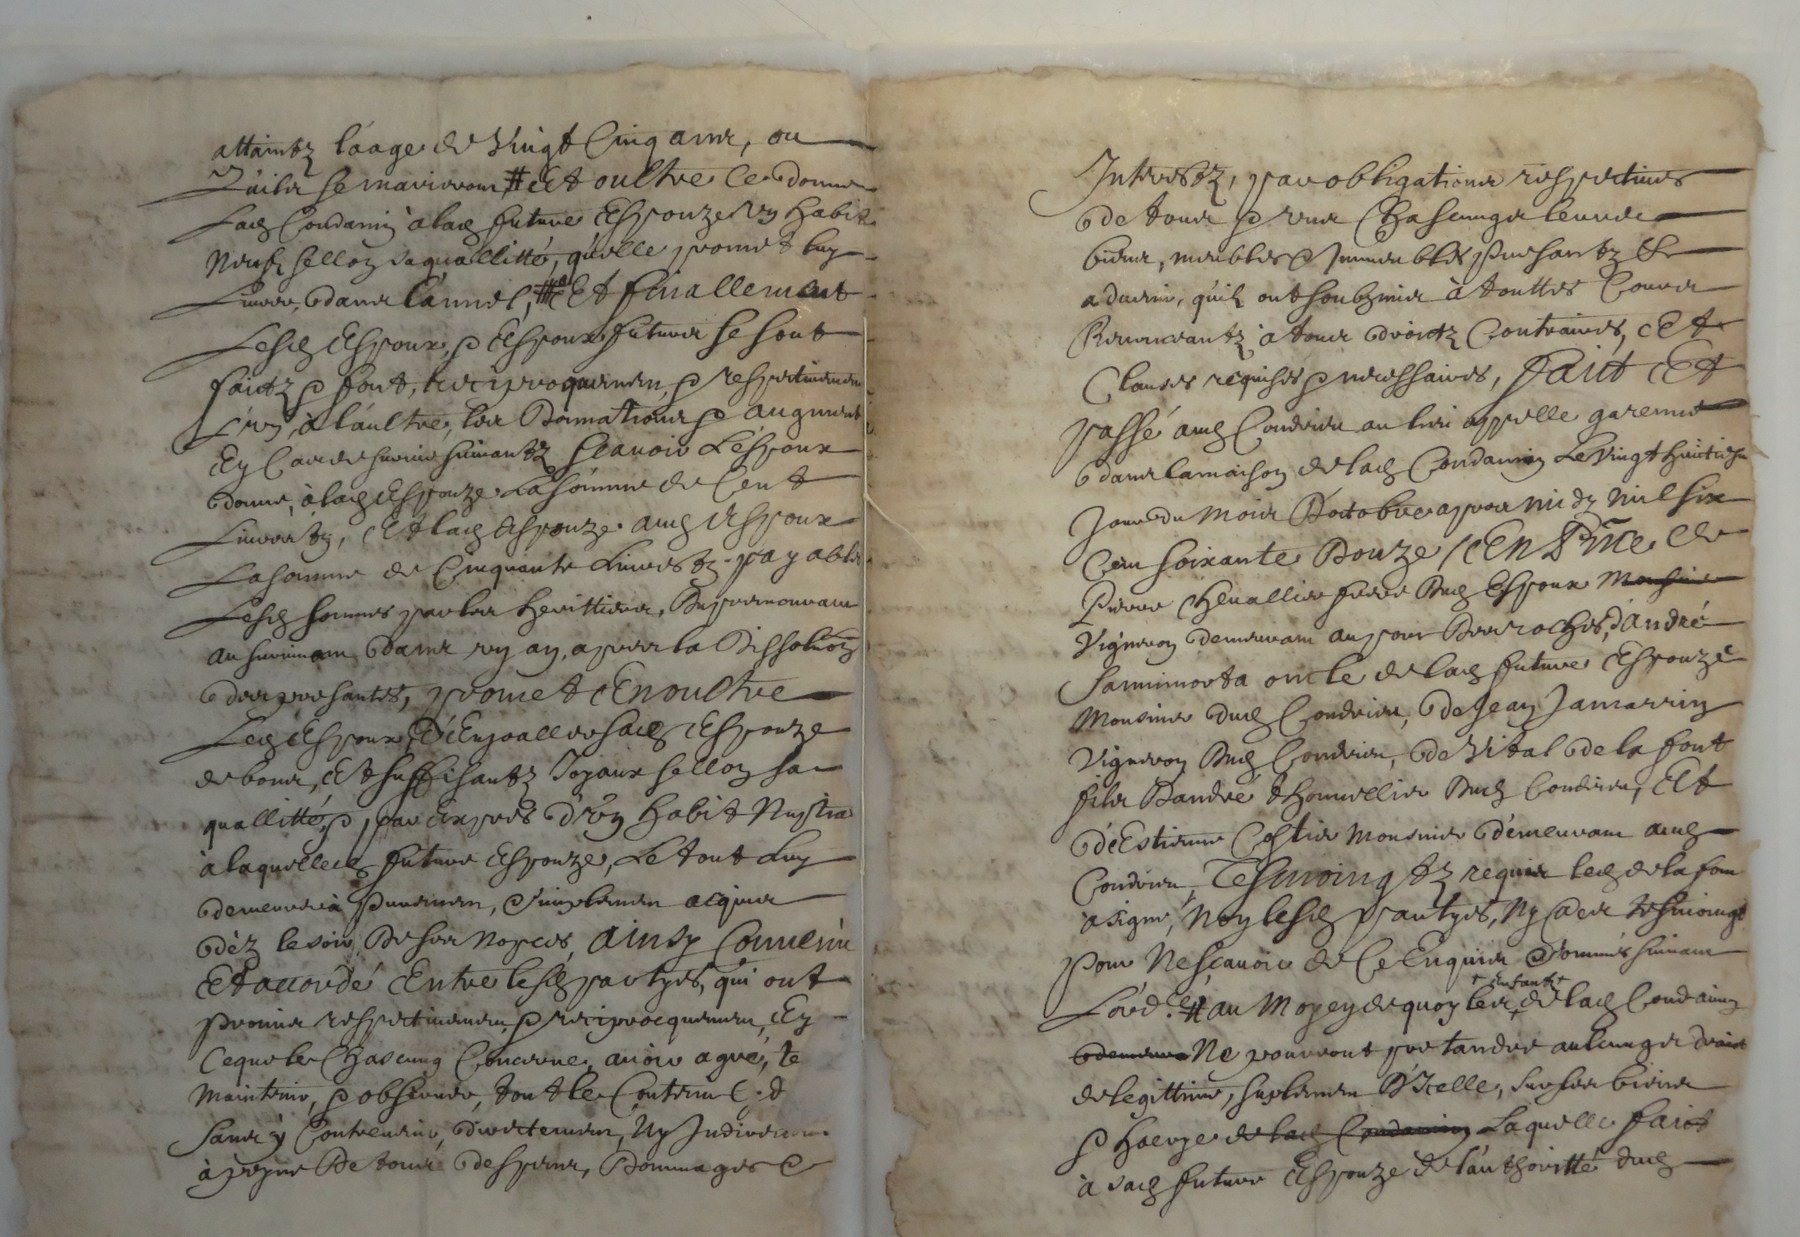 attaintz l'aage de Vingt Cinq ans, ou
Qu'ilz se marieront # Et oultre Ce donne
Lad Condamin à lad future Espouze un habit
Neuf sellon sa quallitté, qu'elle promet luy
Livrer dans l'année, # Et finallement
Lesd Espoux, & Espouze futurs se sont
faictz & font, reciproquement, & respectivement
L'un, à l'aultre, les Donnations & augment
En Cas de survie suivantz Scavoir L'espoux
donne, à lad Espouze La somme de Cent
Livres tz, Et lad Espouze aud Espoux
La somme de Cinquante Livres tz payables
Lesd sommes par les herittiers, Du premourant
au survivant dans un an, apres la Dissolution
des presantes, promet En oultre
Led Espoux, D'Enjoaller sad Espouze
de bons, Et suffisantz Joyaux sellon sa
quallitté, & par Expres d'un habit Nuptial
à laquelle future Espouze, Le tout Luy
demeurera purement, & simplement acquis
dez le soir De ses Nopces, ainsy Convenu
Et accordé Entre lesd partyes, qui ont
promis respectivement & reciprocquement, En
Ceque les Chascung Concerne, avoir agreé, te
Maintenir, & observer, tout le Contenu C. d
Sans y Contrevenir, directement, Ny Indirectement
à peyne De tous despens, Dommages &
Interestz, par obligations respectives
de tous & uns Chascungs leurs
biens, meubles & Immeubles presantz &
advenir, qu'ilz ont soubzmis à touttes Cours
Renonceantz à tous droictz Contraires, Et
Clauses requises & necessaires, faict Et
passé aud Condrieu au lieu appelle garenne
dans la maison de lad Condamin Le Vingt huictiesme
Jour du Mois D'octobre apres midy mil six
Cens soixante Douze / En Pnce de
Pierre Chevallier frere Dud Espoux
Vigneron demeurant au pour Des roches, d'andré
Sannimorta oncle de lad future Espouze
Monsnier dud Condrieu, de Jean Jamarrin
Vigneron Dud Condrieu, de Vital de la font
fils D'andré thonnellier Dud Condrieu, Et
d'Estienne Costier Monsnier demeurant aud
Condrieu, Tesmoingtz requis led de la font
a signé, Non lesd partyes, Ny Les tesmoingz
pour Ne Scavoir de Ce Enquis & sommés suivant
L'ordce # au Moyen de quoy les + enfantz + de lad Condamin
Ne pourront pretandre aulcungs droict
de legittime, suplement D'Icelle, sur ses biens
& hoerye Laquelle faict
à sad future Espouze de l'authoritté dud